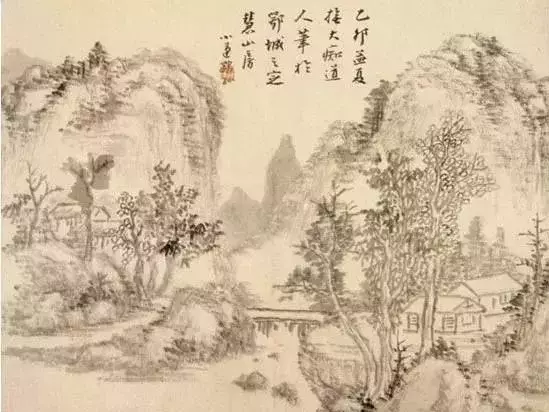 乙卯孟夏
大痴道
人筆於
鄂城之定
慧山房
小蓮